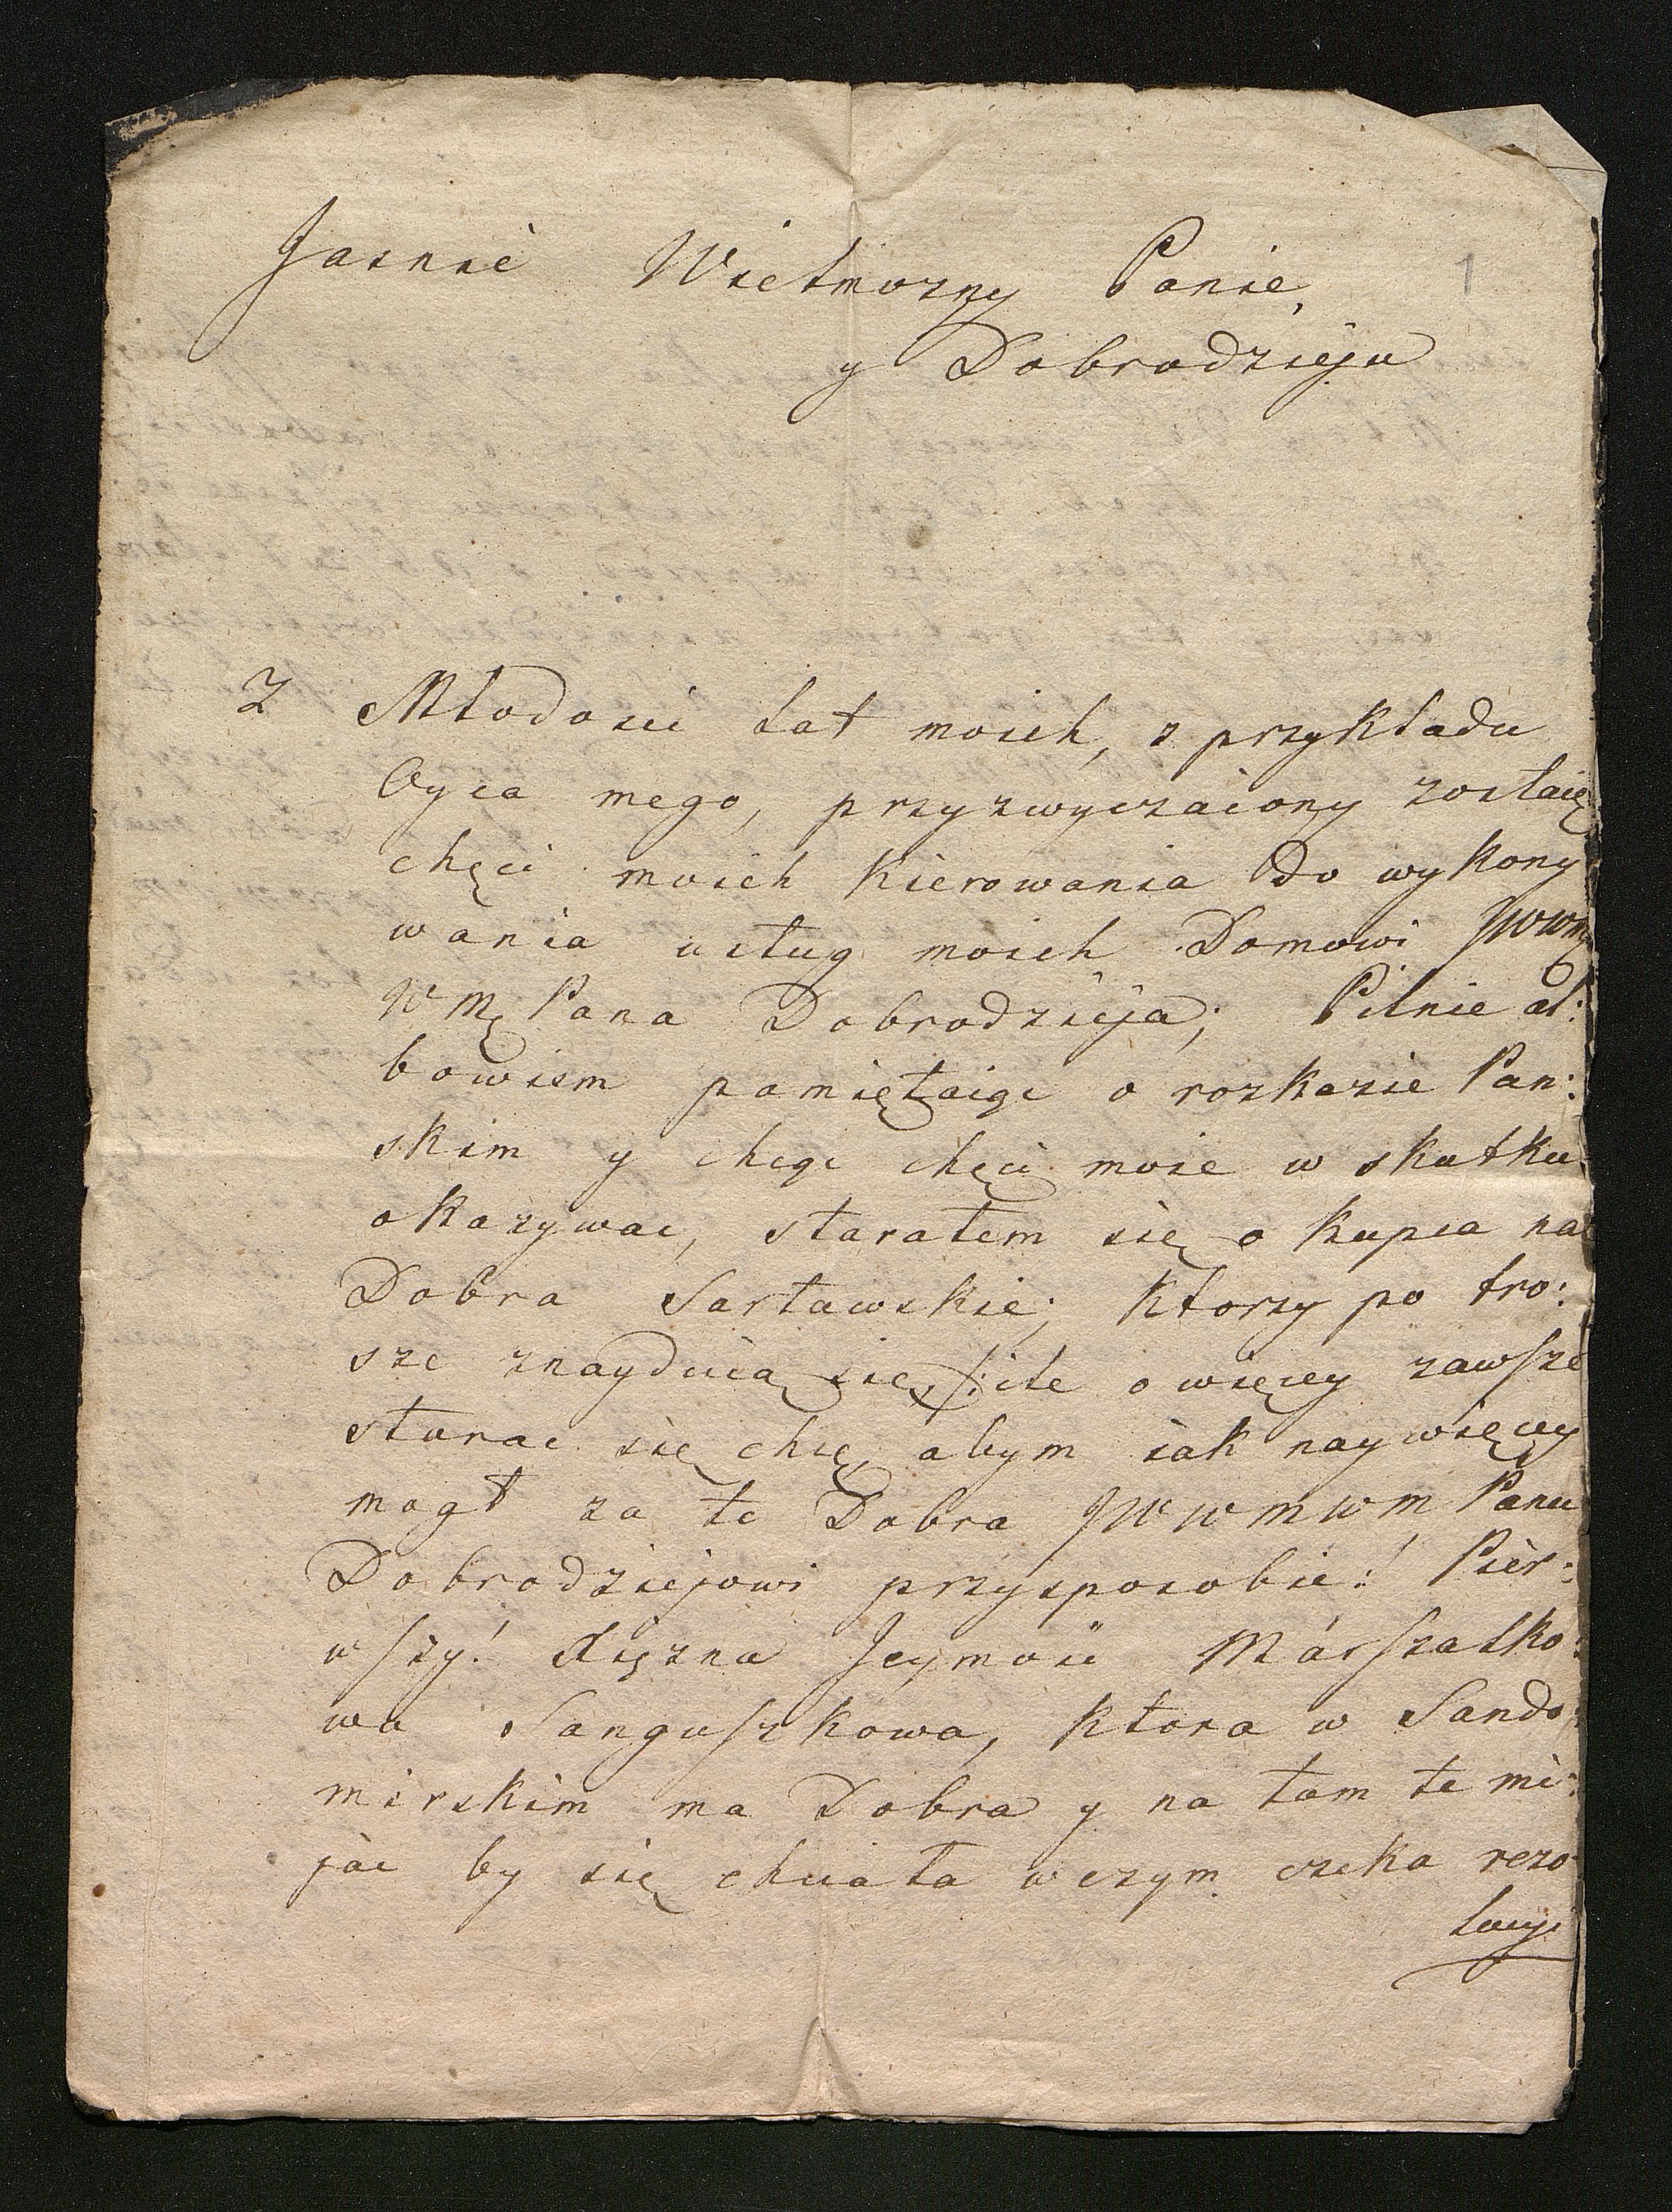 Jasnie Wielmozny Panie,
1
y Dobrodzieju
Z Młodosci lat moich, z przykładu
Oyca mego, przyzwyczaiony zostaię
chęci moich kierowania do wykony
wania usług moich Domowi JWWM
WM Pana Dobrodzieja; Pilnie al:
bowiem pamiętaiąc o rozkazie Pan:
skim y chcąc chęci moie w skutku
okazywac, starałem się o kupca na
Dobra Sartawskie; ktorzy po tro:
sze znayduią się /: ile o więcey zawsze
starac się chcę, abym iak naywięcey
mogł za te Dobra JWWMWM Panu
Dobrodziejowi przysposobic! Pier:
wszy! Xięzna Jeymosc Marszałko:
wa Sanguszkowa, ktora w Sando:
mirskim ma Dobra y na tam te mi:
jac by się chciała w czym czeka rezo
lucyi